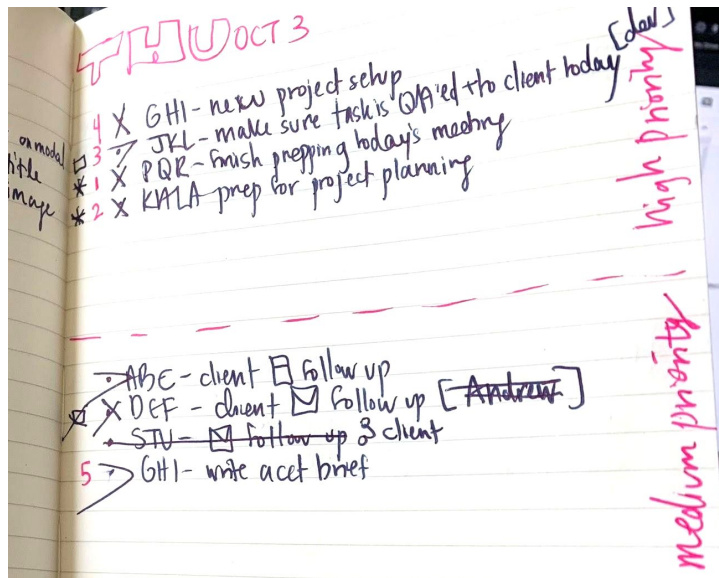 THU OCT 3
[dev]
4 X GHI - new project setup
3 > JKL - make sure task is QA'ed + to client today
* 1 X PQR - finish prepping today's meeting
* 2 X KALA prep for project planning
high priority
on modal
title
image
ABE - client follow up
X DEF - client follow up [Andrew]
STU - follow up & client
5 > GHI - write acct brief
medium priority